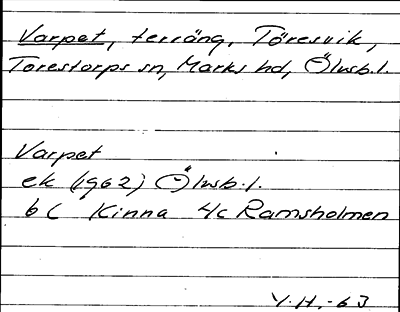 Varpet, terräng, Töresvik,
Torestorps sn, Marks hd, Älvsb.l.
Varpet
ek (1962) Älvsb.l.
6 C Kinna 4c Ramsholmen
Y.H.-63